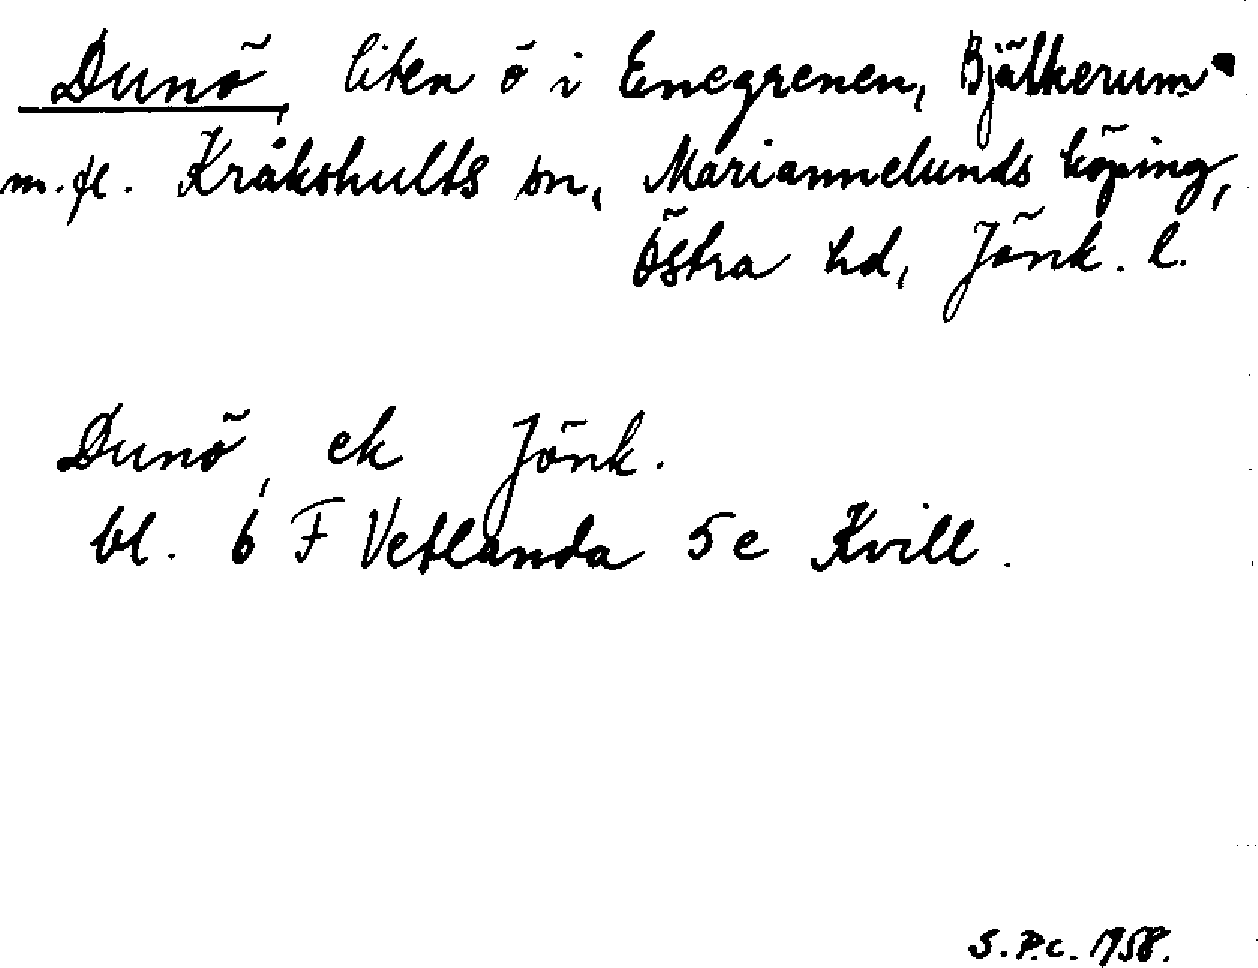 Dunö, liten ö i Enegrenen, Bjälkerum
m.fl. Kråkshults sn, Mariannelunds köping,
Östra hd, Jönk. l.
Dunö, ek Jönk.
bl. 6 F Vetlanda 5e Kvill.
S.P.C. 1958.